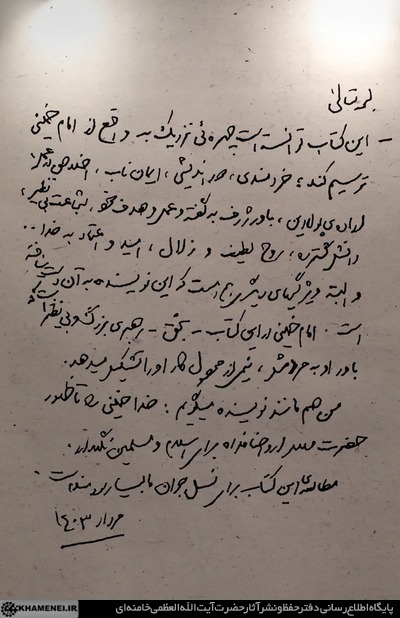 بسمه تعالی
- این کتاب توانسته است چهره‌ئی نزدیک به واقع از امام خمینی
ترسیم کند؛ خردمندی، دوراندیشی، ایمان ناب، اخلاص در عمل،
اراده‌ی پولادین، باور ژرف به گفته و عمل و هدف خود، شجاعت بی‌نظیر،
دانش گسترده، روح لطیف و زلال، امید و اعتماد به خدا ..
و البته ویژگیهای دیگری هم هست که این نویسنده به آن دست نیافته
است. امام خمینی در این کتاب - بحق - رهبری بزرگ و بی‌نظیر است که
باور او به مردمش، نیمی از محصول کار او را تشکیل میدهد.
من هم مانند نویسنده میگویم: خدا خمینی را تا ظهور
حضرت مهدی ارواحنا فداه برای اسلام و مسلمین نگهدارد.
مطالعه‌ی این کتاب برای نسل جوان ما بسیار سودمند است.
مرداد ۱۴۰۳
KHAMENEI.IR
پایگاه اطلاع رسانی دفتر حفظ و نشر آثار حضرت آیت الله العظمی خامنه‌ای